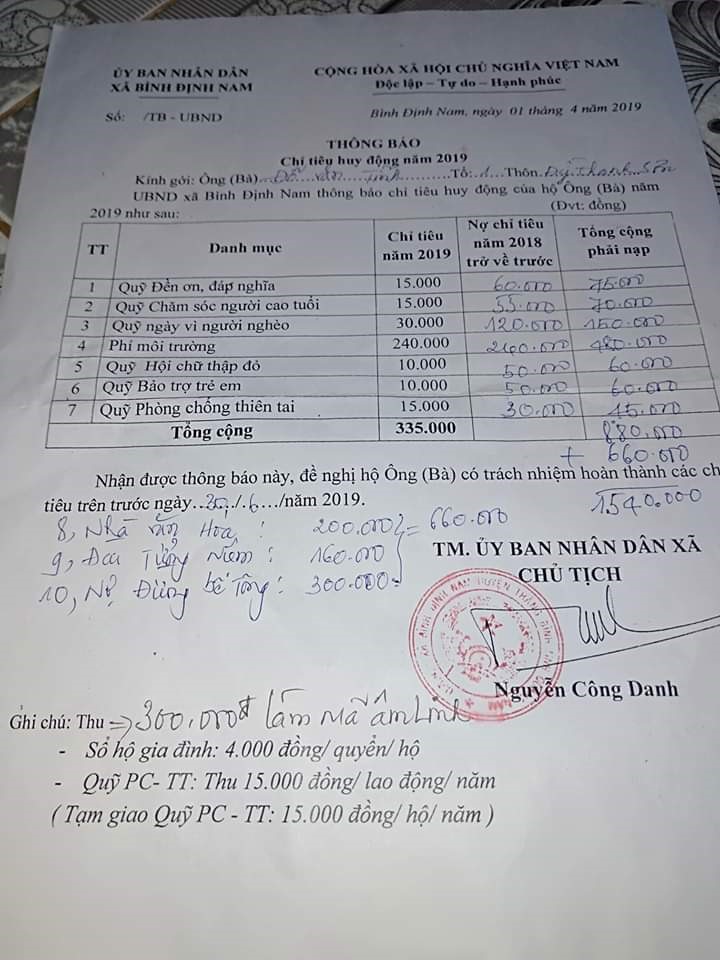 ỦY BAN NHÂN DÂN
XÃ BÌNH ĐỊNH NAM
Số: /TB - UBND
CỘNG HÒA XÃ HỘI CHỦ NGHĨA VIỆT NAM
Độc lập – Tự do – Hạnh phúc
Bình Định Nam, ngày 01 tháng 4 năm 2019
THÔNG BÁO
Chỉ tiêu huy động năm 2019
Kính gởi: Ông (Bà)... Tổ: 1 Thôn
UBND xã Bình Định Nam thông báo chỉ tiêu huy động của hộ Ông (Bà) năm
2019 như sau: (Đvt: đồng)
TT Danh mục Chỉ tiêu năm 2019 Nợ chỉ tiêu năm 2018 trở về trước Tổng cộng phải nạp
1 Quỹ Đền ơn, đáp nghĩa 15.000 60.000 75.000
2 Quỹ Chăm sóc người cao tuổi 15.000 55.000 70.000
3 Quỹ ngày vì người nghèo 30.000 120.000 150.000
4 Phí môi trường 240.000 240.000 480.000
5 Quỹ Hội chữ thập đỏ 10.000 50.000 60.000
6 Quỹ Bảo trợ trẻ em 10.000 50.000 60.000
7 Quỹ Phòng chống thiên tai 15.000 30.000 45.000
Tổng cộng 335.000 880.000
+ 660.000
Nhận được thông báo này, đề nghị hộ Ông (Bà) có trách nhiệm hoàn thành các ch
tiêu trên trước ngày..30./.6.../năm 2019.
1.540.000
8, Nhà Văn Hoá: 200.000 = 660.000
9, Đài Tưởng Niệm: 160.000
10, Nợ Đường bê Tông: 300.000
TM. ỦY BAN NHÂN DÂN XÃ
CHỦ TỊCH
Nguyễn Công Danh
Ghi chú: Thu => 300.000đ làm Mã âm Linh
- Sổ hộ gia đình: 4.000 đồng/ quyển/ hộ
- Quỹ PC- TT: Thu 15.000 đồng/ lao động/ năm
( Tạm giao Quỹ PC - TT: 15.000 đồng/ hộ/ năm )